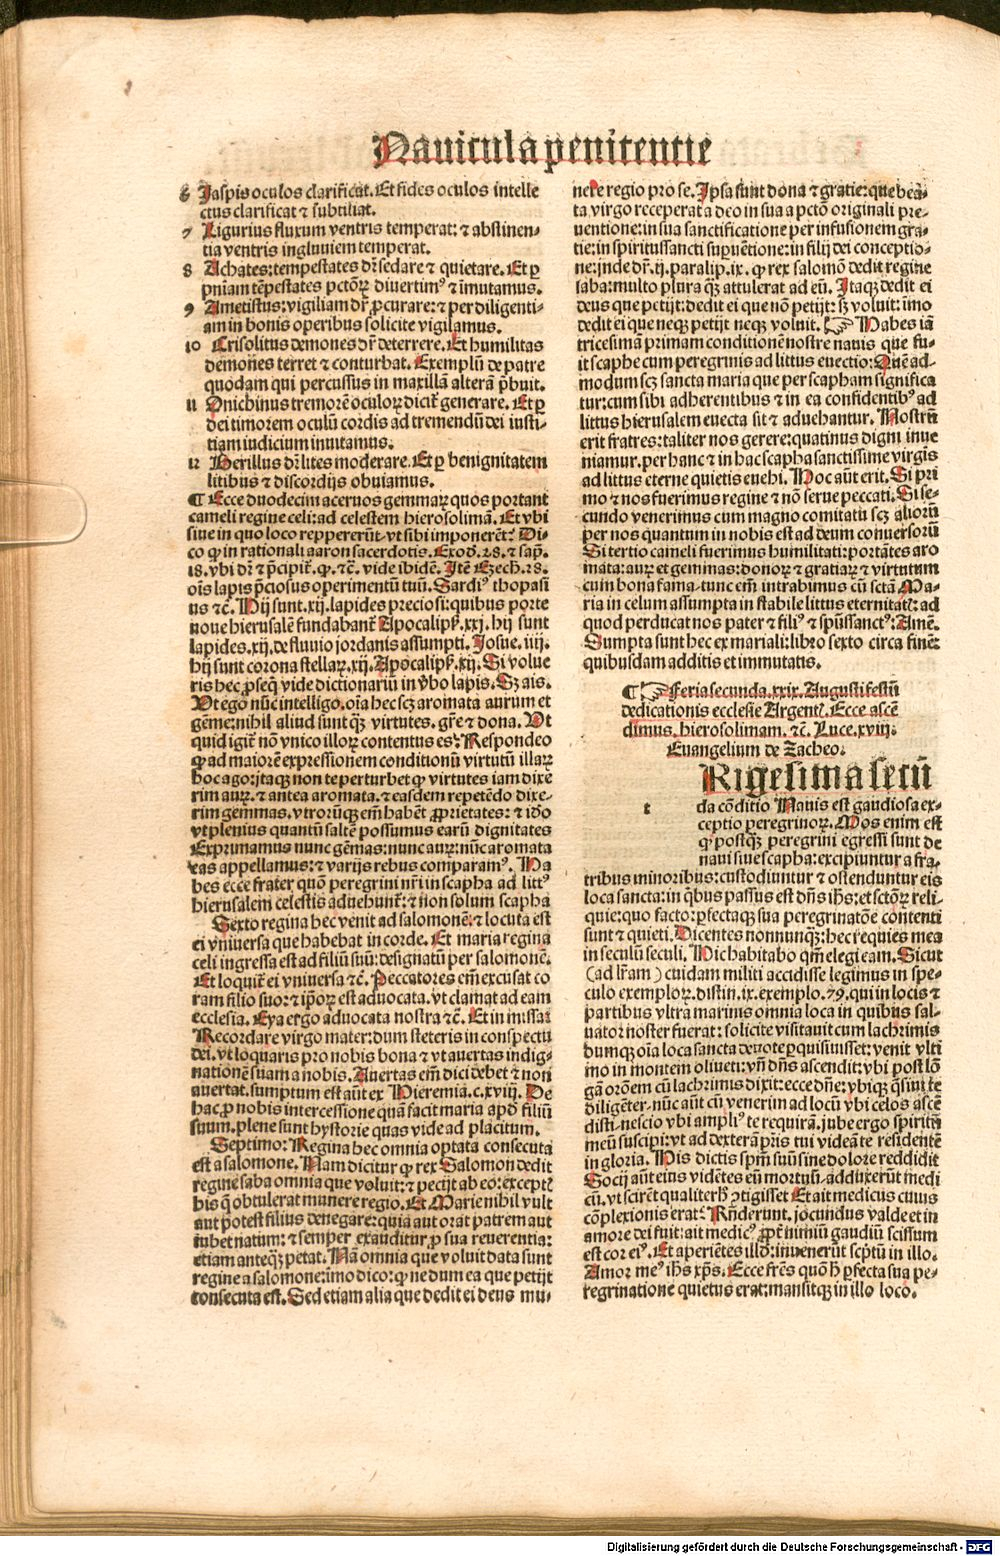 Nauicula penitentie
6 Jaspis oculos clarificat. Et fides oculos intelle
ctus clarificat ⁊ subtiliat.
7 Ligurius fluxum ventris temperat: ⁊ abstinen-
tia ventris ingluuiem temperat.
8 Achates: tempestates dr̄ sedare ⁊ quietare. Et ꝑ
pn̄iam tēpestates pctōꝝ diuertimꝰ ⁊ īmutamus.
9 Ametistus: vigiliam dr̄ ꝓcurare: ⁊ per diligenti-
am in bonis operibus solicite vigilamus.
10 Crisolitus demones dr̄ deterrere. Et humilitas
demones terret ⁊ conturbat. Exemplū de patre
quodam qui percussus in maxillā alterā p̄buit.
11 Onichinus tremorē oculoꝝ dicit̄ generare. Et ꝑ
dei timorem oculū cordis ad tremendū dei iusti-
tiam iudicium inuitamus.
12 Berillus dr̄ lites moderare. Et ꝑ benignitatem
litibus ⁊ discordijs obuiamus.
¶ Ecce duodecim aceruos gemmaꝝ quos portant
cameli regine celi: ad celestem hierosolimā. Et vbi
siue in quo loco reppererūt: vt sibi imponerēt? Di-
co ꝙ in rationali aaron sacerdotis. Exod. 28. ⁊ sap̄.
18. vbi dr̄ ⁊ p̄cipit̄. ꝙ. ⁊c̄. vide ibidē. Itē Ezech. 28.
oīs lapis p̄ciosus operimentū tuū. Sardiꝰ thopasi
us ⁊c̄. Hij sunt. xij. lapides preciosi: quibus porte
noue hierusalē fundabant̄ Apocalipꝭ. xxj. hij sunt
lapides. xij. de fluuio jordanis assumpti. Josue. iiij.
hij sunt corona stellaꝝ. xij. Apocalipꝭ. xij. Si volue
ris hec ꝓseqꝫ vide dictionariū in v̄bo lapis. Sꝫ ais.
Ut ego nūc intelligo. oīa hec scꝫ aromata aurum et
gēme: nihil aliud sunt qꝫ virtutes. gr̄e ⁊ dona. Ut
quid igit̄ nō vnico illoꝝ contentus es? Respondeo
ꝙ ad maiorē expressionem conditionū virtutū illaꝝ
hoc ago: itaqꝫ non te perturbet ꝙ virtutes iam dixe
rim auꝝ. ⁊ antea aromata. ⁊ easdem repetēdo dixe-
rim gemmas. vtrorūqꝫ em̄ habēt ꝓprietates: ⁊ iđo
vt plenius quantū saltē possumus earū dignitates
Exprimamus nunc gēmas: nunc auꝝ: nūc aromata
eas appellamus: ⁊ varijs rebus comparamꝰ. Ha
bes ecce frater quō peregrini nr̄i in scapha ad littꝰ
hierusalem celestis aduehunt̄: ⁊ non solum scapha
Sexto regina hec venit ad salomonē: ⁊ locuta est
ei vniuersa que habebat in corde. Et maria regina
celi ingressa est ad filiū suū: designatū per salomonē.
Et loquit̄ ei vniuersa ⁊c̄. Peccatores em̄ excusat co
ram filio suo: ⁊ ip̄oꝝ est aduocata. vt clamat ad eam
ecclesia. Eya ergo aduocata nostra ⁊c̄. Et in missa:
Recordare virgo mater: dum steteris in conspectu
dei. vt loquaris pro nobis bona ⁊ vt auertas indig-
nationē suam a nobis. Auertas em̄ dici debet ⁊ non
auertat. sumptum est aūt ex Hieremia. c. xviij. De
hac ꝓ nobis intercessione quā facit maria apđ filiū
suum. plene sunt hystorie quas vide ad placitum.
Septimo: Regina hec omnia optata consecuta
est a salomone. Nam dicitur ꝙ rex Salomon dedit
regine saba omnia que voluit: ⁊ pecijt ab eo: except̄
his q̄ obtulerat munere regio. Et Marie nihil vult
aut potest filius denegare: quia aut orat patrem aut
iubet natum: ⁊ semper exauditur ꝓ sua reuerentia:
etiam anteqꝫ petat. Nā omnia que voluit data sunt
regine a salomone: imo dico: ꝙ ne dum ea que petijt
consecuta est. Sed etiam alia que dedit ei deus mu-
nere regio pro se. Ipsa sunt dona ⁊ gratie: que bea-
ta virgo receperat a deo in sua a pctō originali pre-
uentione: in sua sanctificatione per infusionem gra-
tie: in spiritussancti supuētione: in filij dei conceptio-
ne: inde dr̄. ij. paralip. ix. ꝙ rex salomō dedit regine
saba: multo plura qꝫ attulerat ad eū. Itaqꝫ dedit ei
deus que petijt: dedit ei que nō petijt: sꝫ voluit: imo
dedit ei que neqꝫ petijt neqꝫ voluit. ☞ Habes iā
tricesimā primam conditionē nostre nauis que fu-
it scaphe cum peregrinis ad littus euectio: Quē ad-
modum scꝫ sancta maria que per scapham significa
tur: cum sibi adherentibus ⁊ in ea confidentibꝰ ad
littus hierusalem euecta sit ⁊ aduehantur. Nostrū
erit fratres: taliter nos gerere: quatinus digni inue
niamur. per hanc ⁊ in hac scapha sanctissime virgis
ad littus eterne quietis euehi. Hoc aūt erit. Si pri
mo ⁊ nos fuerimus regine ⁊ nō serue peccati. Si se-
cundo venerimus cum magno comitatu scꝫ alioꝝ
per nos quantum in nobis est ad deum conuersorū
Si tertio cameli fuerimus humilitati: portātes aro
mata: auꝝ et gemmas: donoꝝ ⁊ gratiaꝝ ⁊ virtutum
cum bona fama. tunc em̄ intrabimus cū sctā Ma-
ria in celum assumpta in stabile littus eternitatꝭ: ad
quod perducat nos pater ⁊ filiꝰ ⁊ spūssanctꝰ: Amē.
Sumpta sunt hec ex mariali: libro sexto circa finē:
quibusdam additis et immutatis.
¶ ☞ Feria secunda. xxix. Augusti festū
dedicationis ecclesie Argentꝭ. Ecce ascē
dimus hierosolimam. ⁊c̄. Luce. xviij.
Euangelium de Zacheo.
t Rigesima secū
da cōditio Nauis est gaudiosa ex-
ceptio peregrinoꝝ. Mos enim est
ꝙ postqꝫ peregrini egressi sunt de
naui siue scapha: excipiuntur a fra-
tribus minoribus: custodiuntur ⁊ ostenduntur eis
loca sancta: in qbus passus est dn̄s ihs: et sctōꝝ reli-
quie: quo facto: ꝑfectaqꝫ sua peregrinatōe contenti
sunt ⁊ quieti. Dicentes nonnunqꝫ: hec requies mea
in seculū seculi. Hic habitabo qm̄ elegi eam. Sicut
(ad lr̄am) cuidam militi accidisse legimus in spe-
culo exemploꝝ. distin. ix. exemplo. 79. qui in locis ⁊
partibus vltra marinis omnia loca in quibus sal-
uator noster fuerat: solicite visitauit cum lachrimis
humqꝫ oīa loca sancta deuote ꝑquisiuisset: venit vlti
mo in montem oliueti: vn̄ dn̄s ascendit: vbi post lō
gā orōem cū lachrimis dixit: ecce dn̄e: vbiqꝫ q̄siui te
diligēter. nūc aūt cū venerim ad locū vbi celos ascē
disti. nescio vbi ampliꝰ te requirā. jube ergo spiritū
meū suscipi: vt ad dexterā pr̄is tui videā te residentē
in gloria. His dictis spm̄ suū sine dolore reddidit
Socij aūt eius vidētes eū mortuū. adduxerūt medi
cū. vt scirent qualiter h̄ ꝯtigisset Et ait medicus cuius
cōplexionis erat? Rn̄derunt. jocundus valde et in
amore dei fuit: ait medicꝰ ꝓpt̄ nimiū gaudiū scissum
est cor eiꝰ. Et aperiētes illđ: inuenerūt scptū in illo.
Amor meꝰ ihs xp̄s. Ecce fr̄es quō h̄ ꝑfecta sua pe-
regrinatione quietus erat: mansitqꝫ in illo loco.
Digitalisierung gefördert durch die Deutsche Forschungsgemeinschaft - DFG